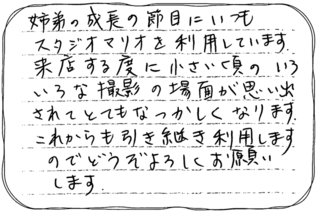 姉弟の成長の節目にいつも
スタジオマリオを利用しています。
来店する度に小さい頃のいろ
いろな撮影の場面が思い出
されてとてもなつかしくなります。
これからも引き継き利用します
のでどうぞよろしくお願い
します。